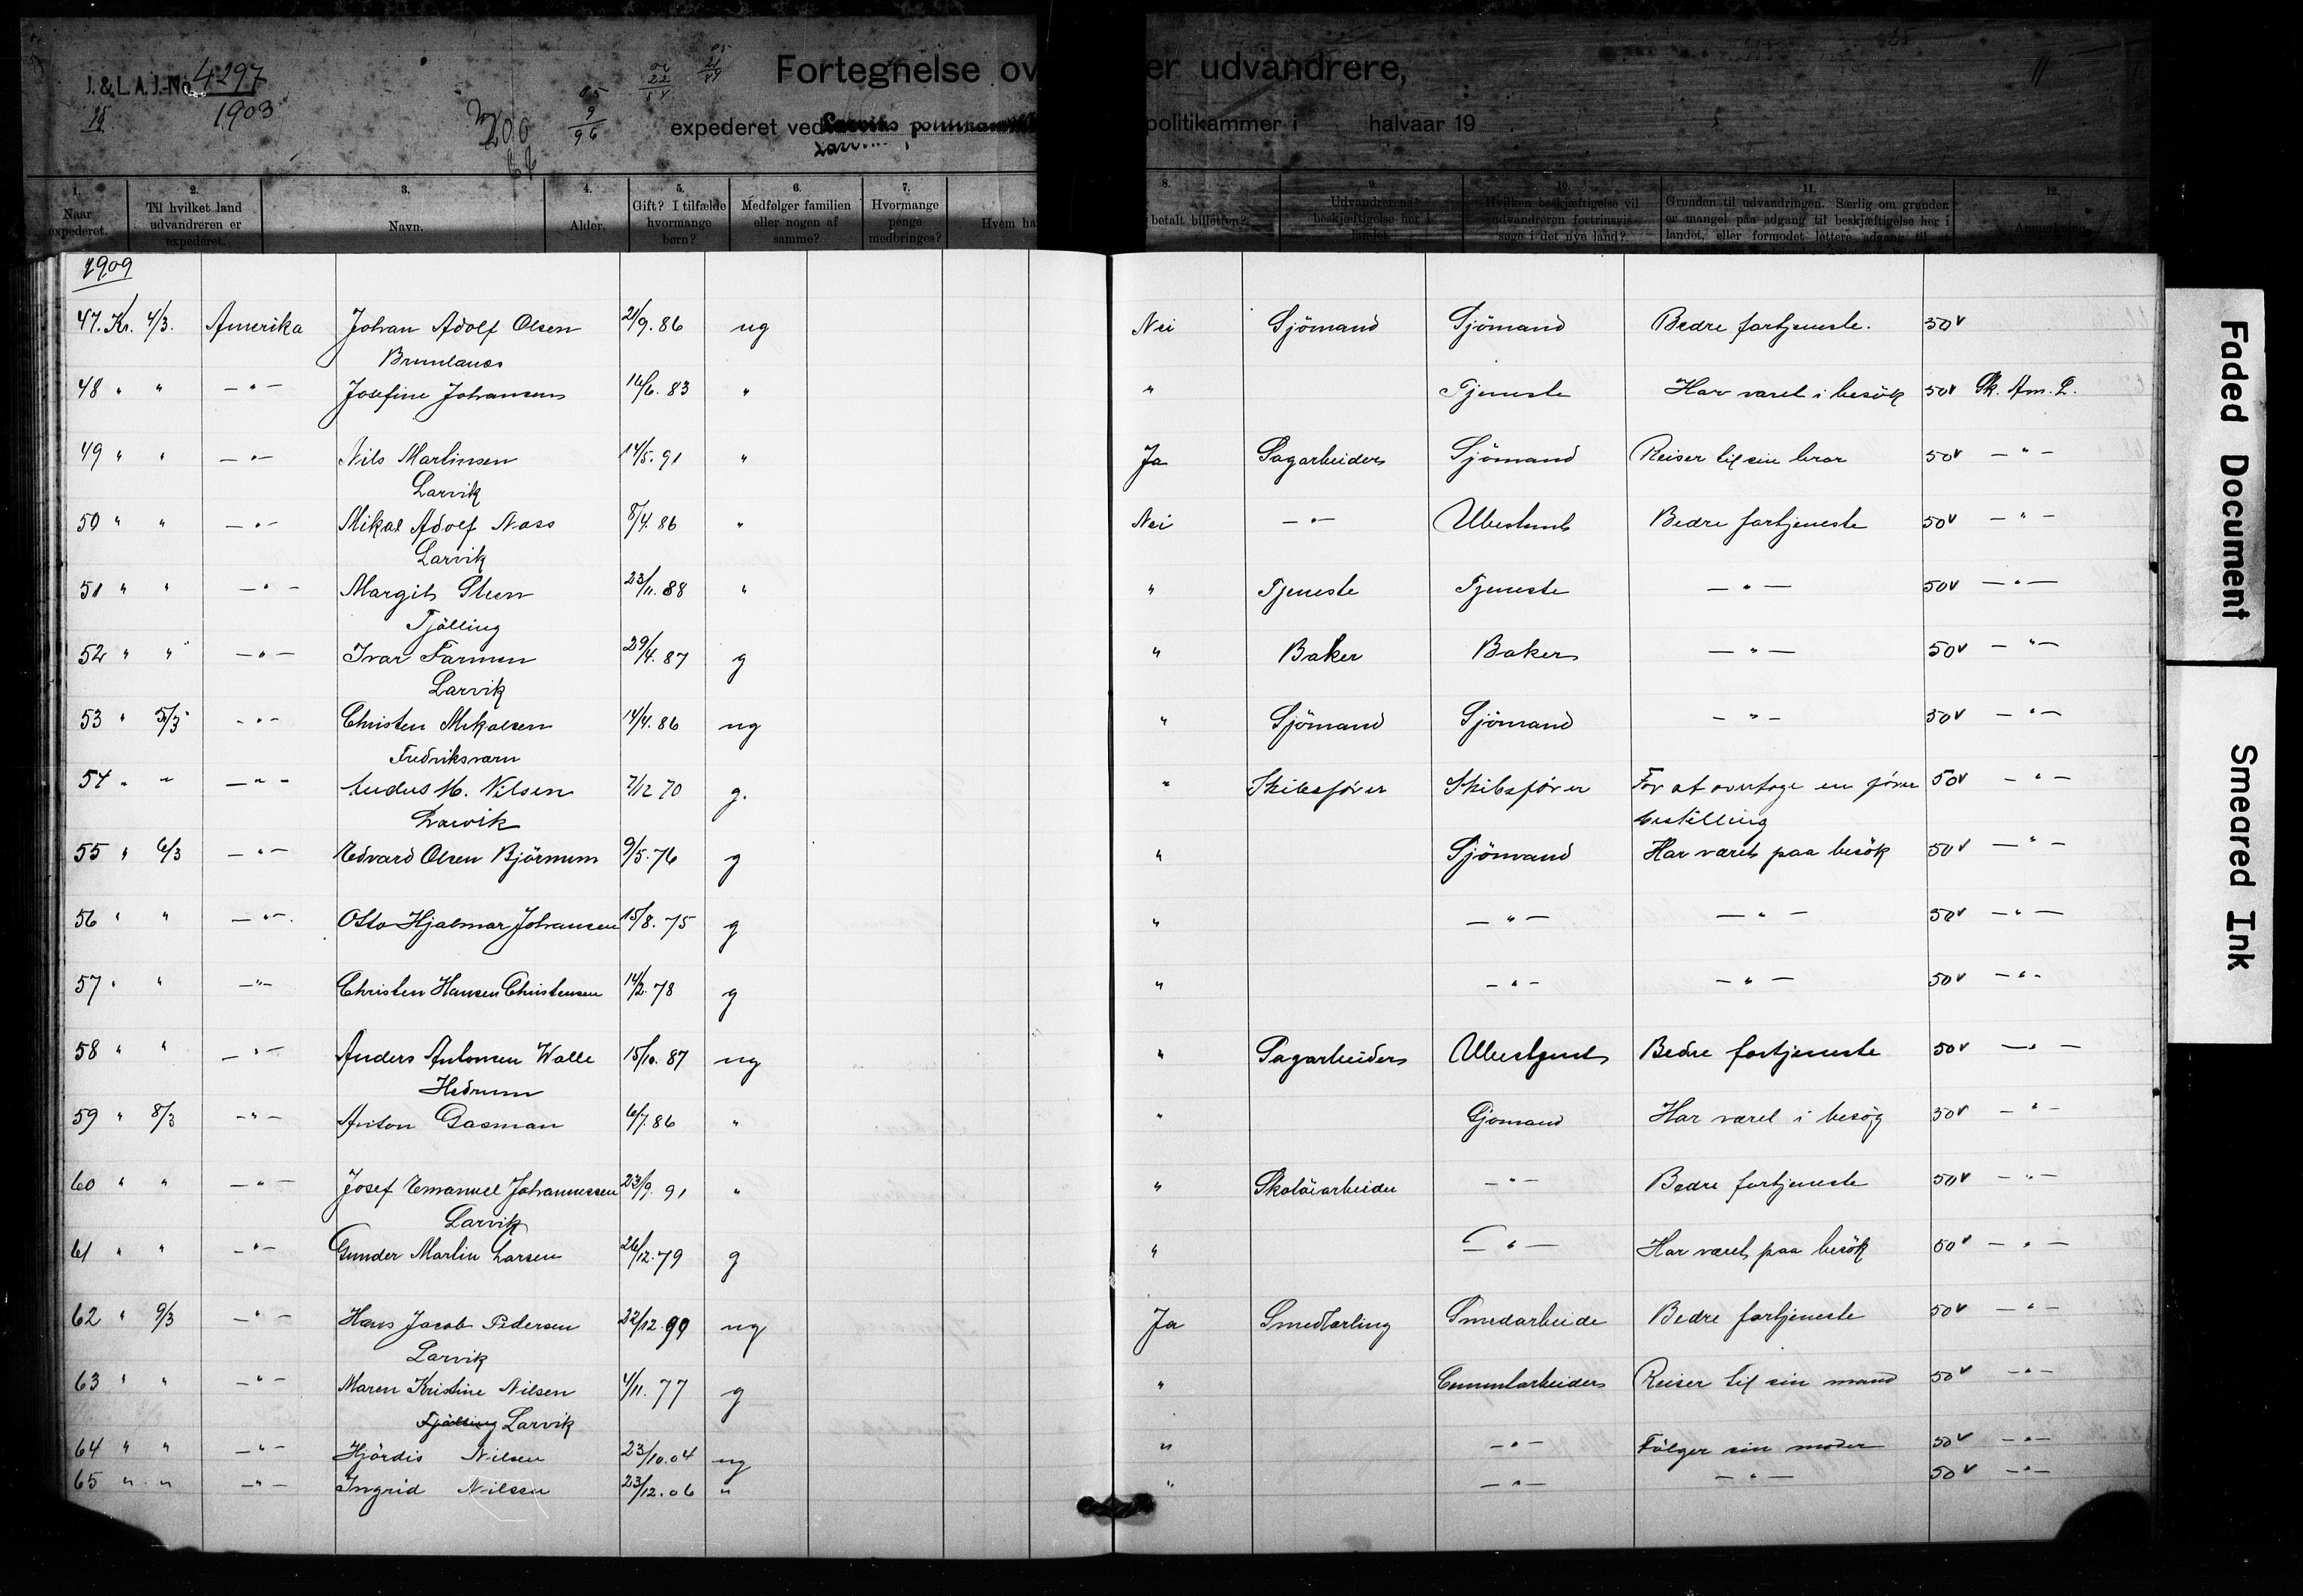 J. & L. A. J.-No. 4297
1903
200
Fortegnelse over udvandrere,
expederet ved Larviks politikammer i halvaar 19
1. Naar expederet.
2. Til hvilket land udvandreren er expederet.
3. Navn.
4. Alder.
5. Gift? I tilfælde hvormange børn?
6. Medfølger familien eller nogen af samme?
7. Hvormange penge medbringes?
8. Hvem ha betalt billetten?
9. Udvandrerens beskjæftigelse her i landet.
10. Hvilken beskjæftigelse vil udvandreren fortrinsvis søge i det nye land?
11. Grunden til udvandringen. Særlig om grunden er mangel paa adgang til beskjæftigelse her i landet, eller formodet lettere adgang til at
12. Anmerkning.
1909
47. Kr. 4/3. Amerika Johan Adolf Olsen 21/9. 86 ug Nei Sjömand Sjömand Bedre fortjeneste. 50v
Brunlanes
48 " " — " — Josefine Johansen 16/6. 83 " " Tjeneste Har været i besök 50v Sk. Am. L.
49 " " — " — Nils Martinsen 14/5. 91 " Ja Sagarbeider Sjömand Reiser til sin bror 50v — " —
Larvik
50 " " — " — Mikal Adolf Næss 8/4. 86 " Nei — " — Ubestemt Bedre fortjeneste 50v — " —
Larvik
51 " " — " — Margit Steen 23/11. 88 " " Tjeneste Tjeneste — " — 50v — " —
Tjölling
52 " " — " — Ivar Farmen 29/4. 87 g " Baker Baker — " — 50v — " —
Larvik
53 " 5/3 — " — Christen Mikalsen 14/4. 86 ug " Sjömand Sjömand — " — 50v — " —
Fredriksværn
54 " " — " — Andus M. Nilsen 2/12 70 g. " Skibsförer Skibsförer For at overtage en förer 50v — " —
Larvik bestilling
55 " 6/3 — " — Edvard Olsen Björnum 9/5. 76 g " Sjömand Har været paa besök 50v — " —
56 " " — " — Otto Hjalmar Johansen 15/8. 75 g " — " — — " — 50v — " —
57 " " — " — Christen Hansen Christensen 14/2. 78 g " — " — — " — 50v — " —
58 " " — " — Anders Antonsen Walle 15/10. 87 ug " Sagarbeider Ubestemt Bedre fortjeneste 50v — " —
Hedrum
59 " 8/3 — " — Anton Gasman 6/7. 86 " " Sjömand Har været i besög 50v — " —
60 " " — " — Josef Emanuel Johannessen 23/9. 91 " " Skotöiarbeider — " — Bedre fortjeneste 50v — " —
Larvik
61 " " — " — Gunder Martin Larsen 26/12. 79 g " — " — Har været paa besök 50v — " —
62 " 9/3 — " — Hans Jacob Pedersen 22/12. 90 ug Ja Smedlærling Smedarbeide Bedre fortjeneste 50v — " —
Larvik
63 " " — " — Maren Kristine Nilsen 4/11. 77 g " Cementarbeider Reiser til sin mand 50v — " —
Tjölling Larvik
64 " " — " — Hjördis Nilsen 23/10. 04 ug " — " — Fölger sin moder 50v — " —
65 " " — " — Ingrid Nilsen 23/12. 06 " " — " — — " — 50v — " —
Faded Document
Smeared Ink